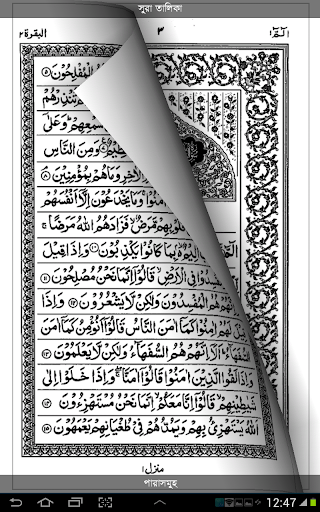 সুরা তালিকা
البقرة ٢ ٣ الٓمّٓ ١
الْمُفْلِحُوْنَ ٥
تُنْذِرْهُمْ
سَمْعِهِمْ وَعَلٰٓى
وَمِنَ النَّاسِ
الْاٰخِرِ وَمَا هُمْ بِمُؤْمِنِيْنَ ٨
وَمَا يَخْدَعُوْنَ اِلَّآ اَنْفُسَهُمْ
مَّرَضٌ فَزَادَهُمُ اللّٰهُ مَرَضًا
بِمَا كَانُوْا يَكْذِبُوْنَ ١٠ وَاِذَا قِيْلَ
فِي الْاَرْضِ قَالُوْٓا اِنَّمَا نَحْنُ مُصْلِحُوْنَ ١١
هُمُ الْمُفْسِدُوْنَ وَلٰكِنْ لَّا يَشْعُرُوْنَ ١٢ وَاِذَا
قِيْلَ لَهُمْ اٰمِنُوْا كَمَآ اٰمَنَ النَّاسُ قَالُوْٓا اَنُؤْمِنُ كَمَآ اٰمَنَ
السُّفَهَآءُ اَلَآ اِنَّهُمْ هُمُ السُّفَهَآءُ وَلٰكِنْ لَّا يَعْلَمُوْنَ ١٣
وَاِذَا لَقُوا الَّذِيْنَ اٰمَنُوْا قَالُوْٓا اٰمَنَّا وَاِذَا خَلَوْا اِلٰى
شَيٰطِيْنِهِمْ قَالُوْٓا اِنَّا مَعَكُمْ اِنَّمَا نَحْنُ مُسْتَهْزِءُوْنَ ١٤
اَللّٰهُ يَسْتَهْزِئُ بِهِمْ وَيَمُدُّهُمْ فِيْ طُغْيَانِهِمْ يَعْمَهُوْنَ ١٥
منزل ١
পারাসমুহ
12:47